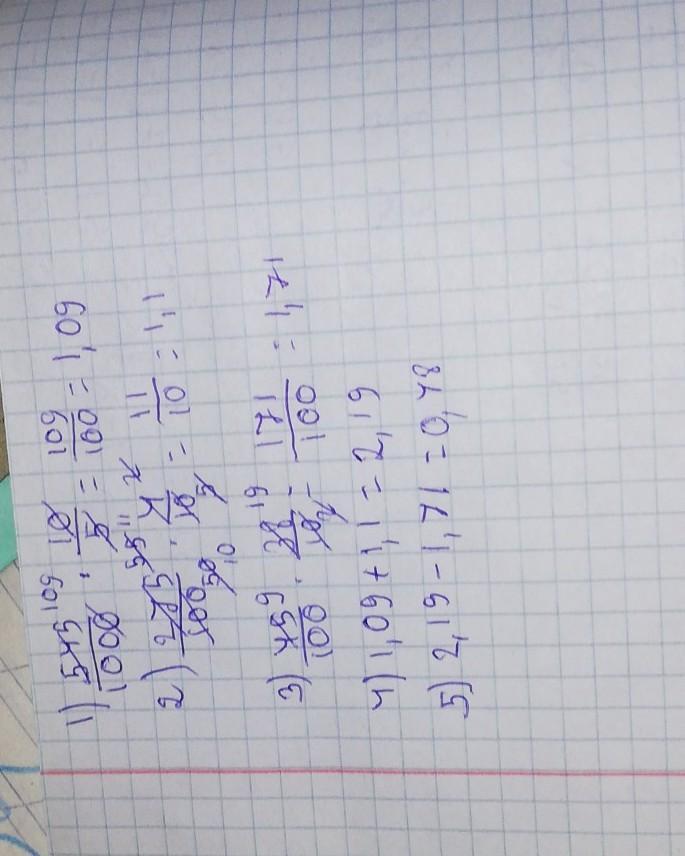 1) 545 109/1000 · 10/5 = 109/100 = 1,09
2) 275 55 11/100 50 10 · 4 2/10 5 = 11/10 = 1,1
3) 45 9/100 · 38 19/10 2 = 171/100 = 1,71
4) 1,09 + 1,1 = 2,19
5) 2,19 - 1,71 = 0,48